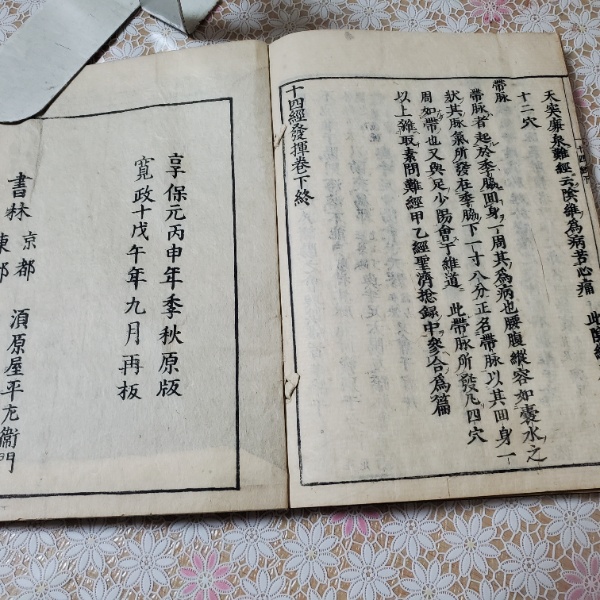 天突廉泉難經云陰維為病苦心痛 此陰
十二穴
帶脉
帶脉者起於季脇回身一周其為病也腰腹縱容如囊水之
狀其脉氣所發在季脇下一寸八分正名帶脉以其回身一
周如帶也又與足少陽會于維道 此帶脉所發凡四穴
以上雜取素問難經甲乙經聖濟總録中參合為篇
十四經發揮卷下終
享保元丙申年季秋原版
寛政十戊午年九月再板
書林 京都 須原屋平左衞門
東都